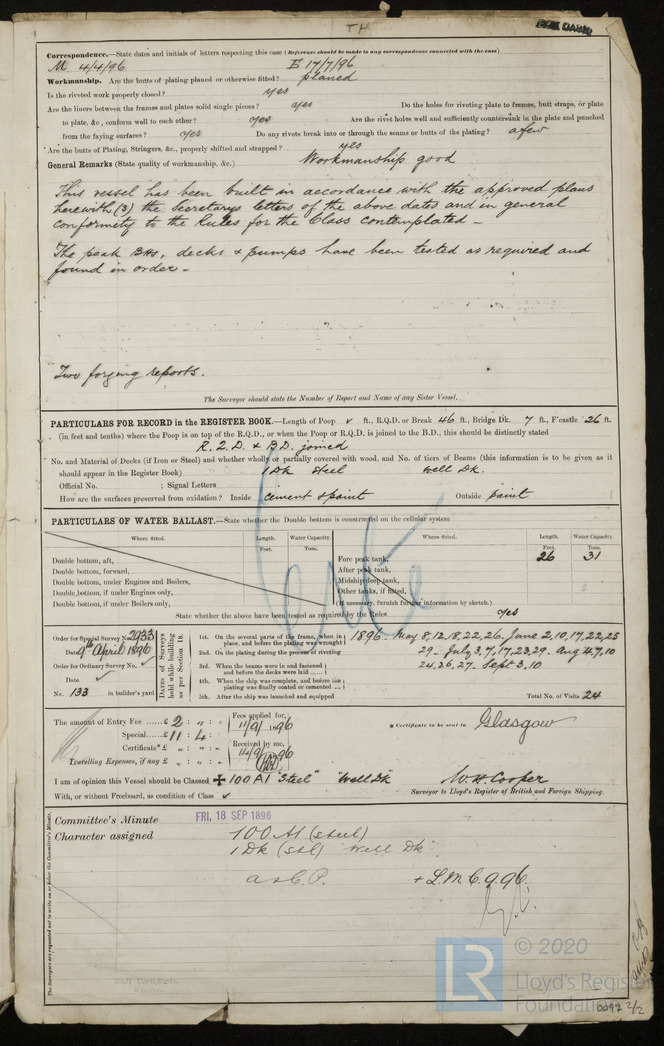 Correspondence.—State dates and initials of letters respecting this case (Reference should be made to any correspondence connected with the case)
M 4/4/96 E 17/7/96
Workmanship. Are the butts of plating planed or otherwise fitted? planed
Is the riveted work properly closed? yes
Are the liners between the frames and plates solid single pieces? yes Do the holes for riveting plate to frames, butt straps, or plate
to plate, &c., conform well to each other? yes Are the rivet holes well and sufficiently countersunk in the plate and punched
from the faying surfaces? yes Do any rivets break into or through the seams or butts of the plating? a few
Are the butts of Plating, Stringers, &c., properly shifted and strapped? yes
General Remarks (State quality of workmanship, &c.) Workmanship good
This vessel has been built in accordance with the approved plans
herewith (3) the Secretarys letters of the above dates and in general
conformity to the Rules for the Class contemplated –
The peak BHs, decks & pumps have been tested as required and
found in order –
Two forging reports.
The Surveyor should state the Number of Report and Name of any Sister Vessel.
PARTICULARS FOR RECORD in the REGISTER BOOK.—Length of Poop ✓ ft., R.Q.D. or Break 46 ft., Bridge Dk. 7 ft., F'castle 26 ft.
(in feet and tenths) where the Poop is on top of the R.Q.D., or when the Poop or R.Q.D. is joined to the B.D., this should be distinctly stated
R. Q. D. & B.D. joined
No. and Material of Decks (if Iron or Steel) and whether wholly or partially covered with wood, and No. of tiers of Beams (this information is to be given as it
should appear in the Register Book) 1 Dk Steel Well Dk.
Official No. ; Signal Letters
How are the surfaces preserved from oxidation? Inside cement & paint Outside paint
PARTICULARS OF WATER BALLAST.—State whether the Double bottom is constructed on the cellular system
Where fitted. Length. Water Capacity. Where fitted. Length. Water Capacity.
Feet. Tons. Feet Tons.
Double bottom, aft, Fore peak tank, 26 31
Double bottom, forward, After peak tank,
Double bottom, under Engines and Boilers, Midship deep tank,
Double bottom, if under Engines only, Other tanks, if fitted,
Double bottom, if under Boilers only, (If necessary, furnish further information by sketch.)
State whether the above have been tested as required by the Rules yes
Order for Special Survey No. 2933
Date 9th April 1896
Order for Ordinary Survey No. ✓
Date ✓
No. 133 in builder's yard
DATES of Surveys held while building as per Section 18.
1st. On the several parts of the frame, when in place, and before the plating was wrought
2nd. On the plating during the process of riveting
3rd. When the beams were in and fastened and before the decks were laid
4th. When the ship was complete, and before the plating was finally coated or cemented
5th. After the ship was launched and equipped
1896 – May 8, 12, 18, 22, 26. June 2, 10, 17, 22, 25
29 – July 3, 7, 17, 23, 29. Aug 4, 7, 10
24, 26, 27. Sept 3, 10
Total No. of Visits 24
The amount of Entry Fee £ 2 : " : " Fees applied for, 11/9/1896
Special £ 11 : 4 : Received by me,
Certificate £ " : " : 14/9/96
Travelling Expenses, if any £ " : " :
Certificate to be sent to Glasgow
I am of opinion this Vessel should be Classed ✠ 100 A1 "Steel" "Well Dk"
With, or without Freeboard, as condition of Class ✓
W. H. Cooper
Surveyor to Lloyd's Register of British and Foreign Shipping.
Committee's Minute FRI, 18 SEP 1896
Character assigned 100 A1 (steel)
1 Dk (stl) Well Dk
a & C. P. + L.M.C. 9.96.
The Surveyors are requested not to write on or below the Committee's Minute.
LR © 2020
Lloyd's Register
Foundation
0092 2/2